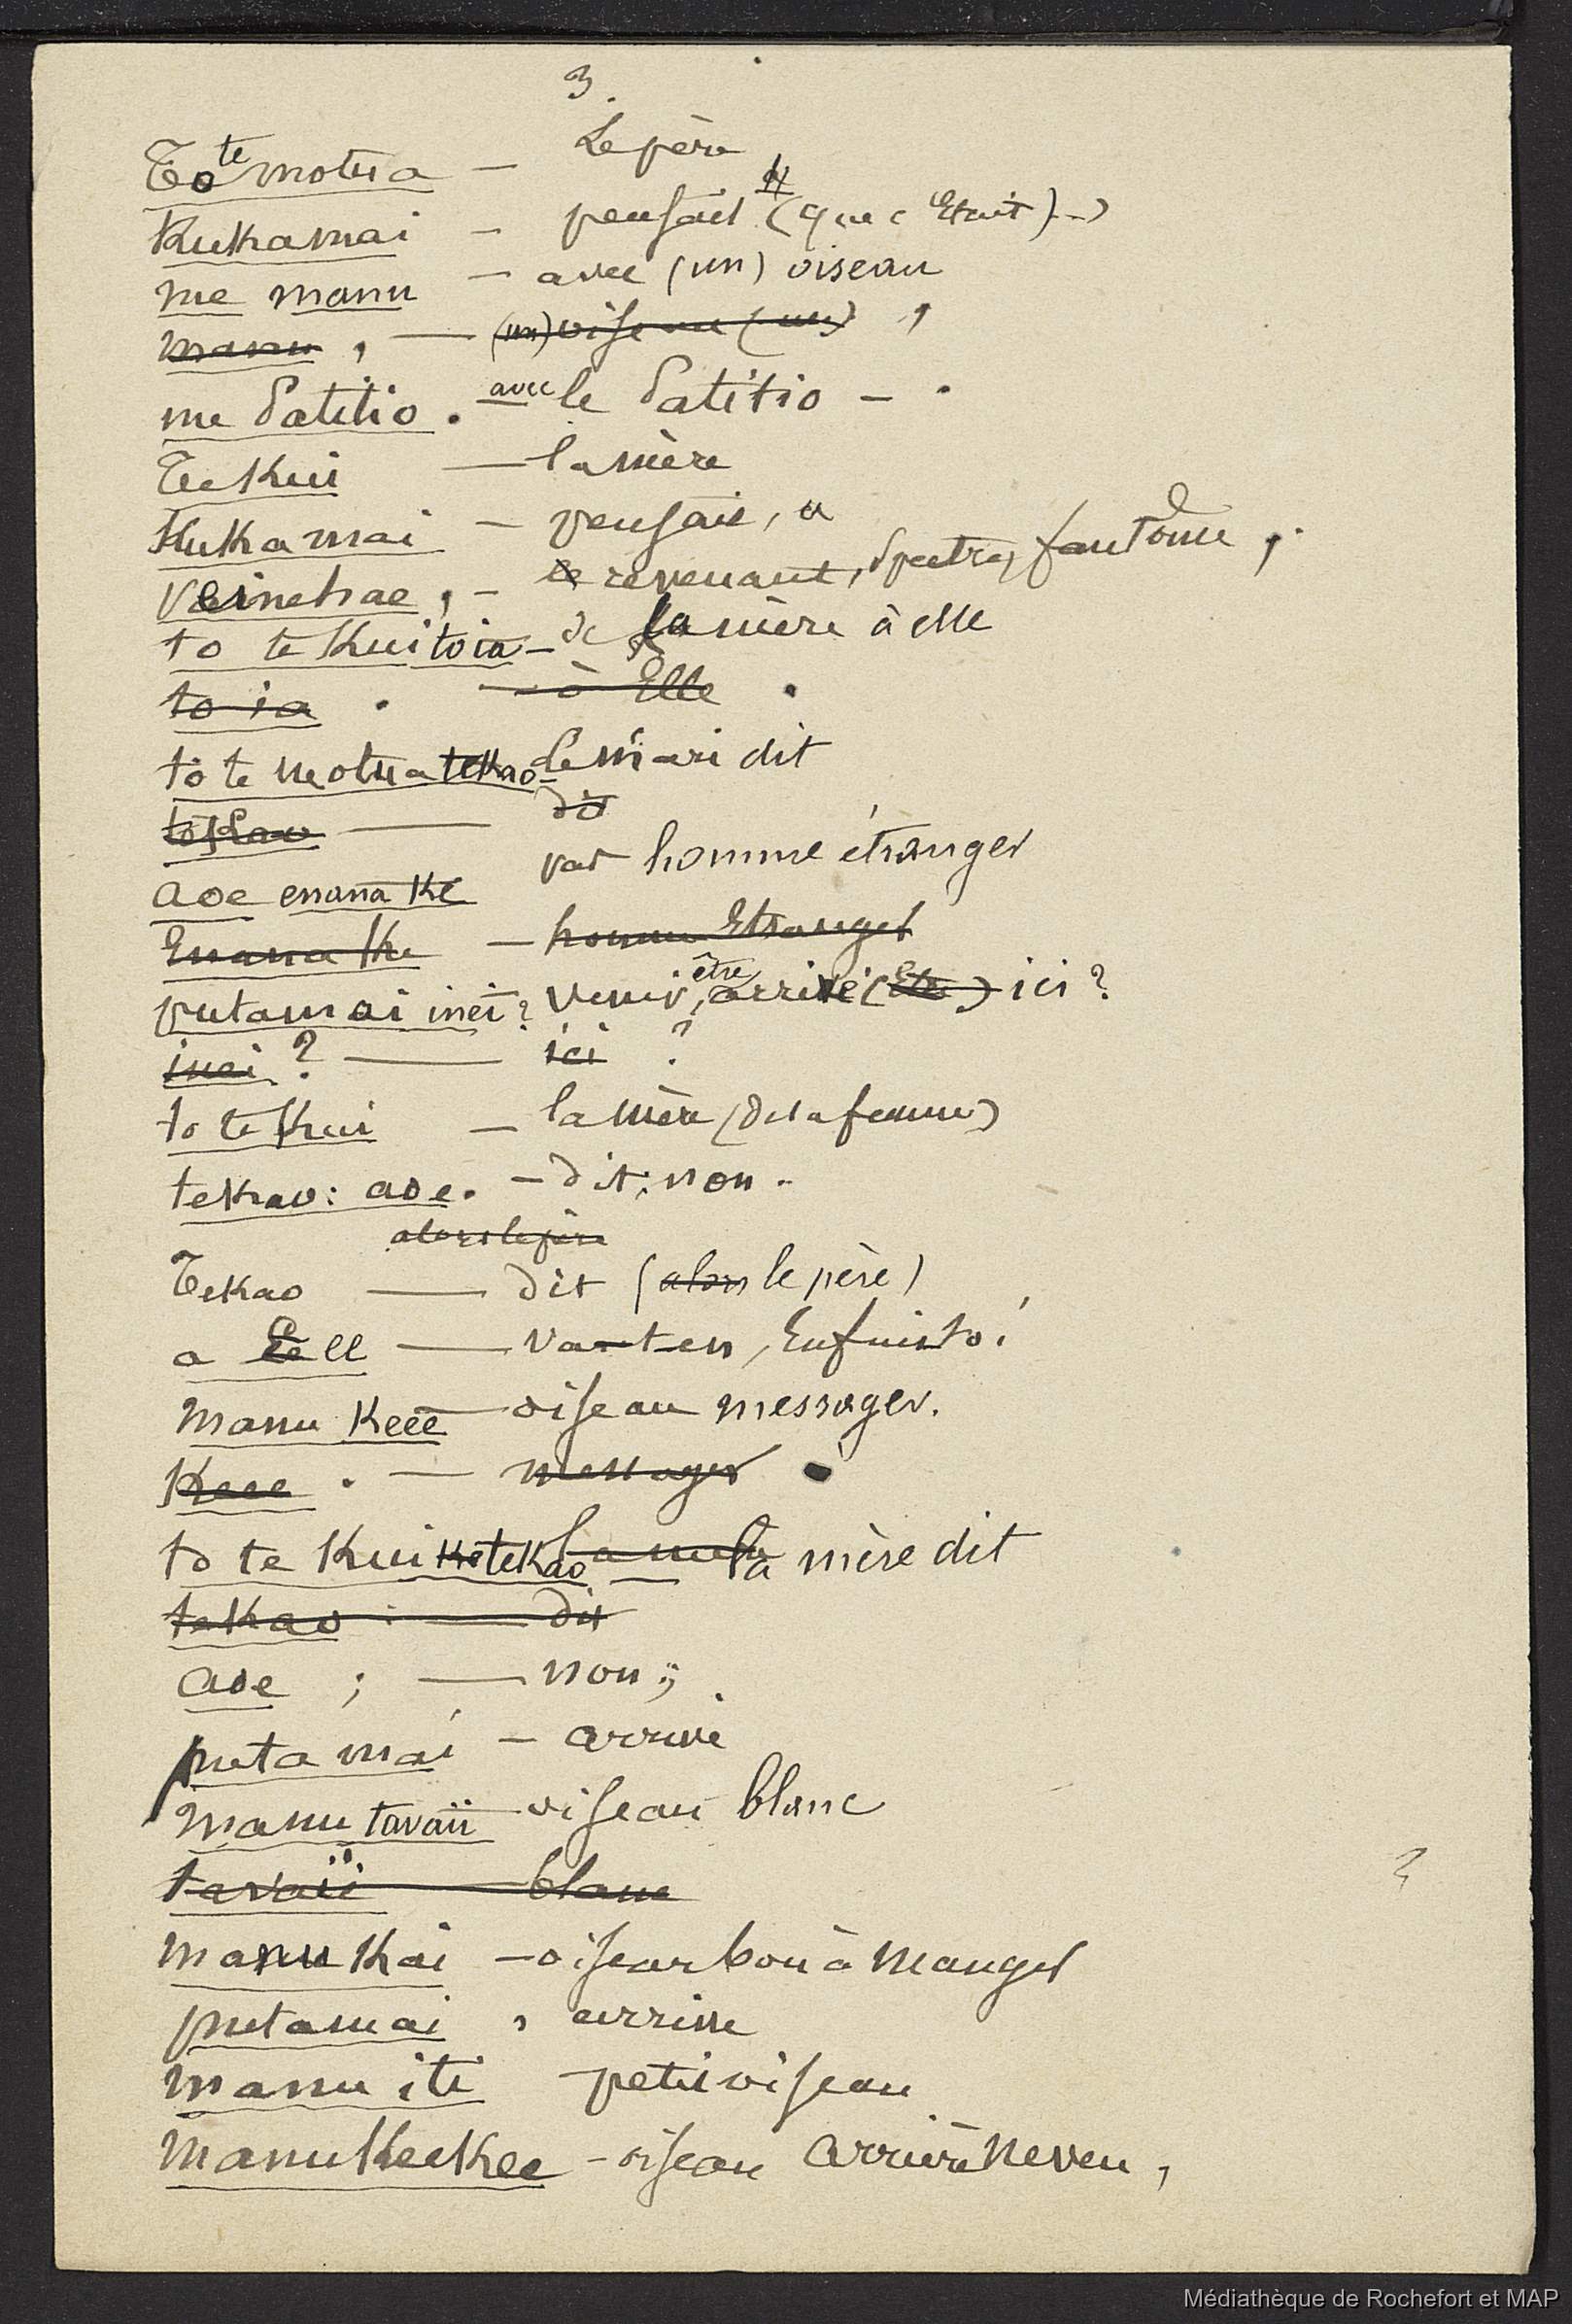 3.
To te motua - Le père
Kukamai - pensait (que c'Etait)
me manu - avec (un) oiseau
manu, - (un) oiseau (un) ,
me Patitio. avec le Patitio -.
Te Kui - la mère
Kukamai - pensait, a
veinehae, - le revenant, spectre, fantôme,.
to te Kui toia - de la mère à elle
to ia . - à Elle .
to te motua tekao - le mari dit
tekao - dit
aoe enana ke pas homme étranger
Enana Ke - homme Etranger
putamai inei? venir, être arrivé (Etre) ici?
inei? - ici ?
to te Kui - la mère (de la femme)
tekao: aoe. - dit: non.
alors le père
Tekao - dit (alors le père)
a Ee ll - va-t-en, Enfuis toi
Manu Keee - oiseau messager.
Keee . - messager .
to te Kui ke tekao - la mère dit
tekao : - dit
aoe ; - non ;
puta mai - arrivé
Manu tavaii - oiseau blanc
tavaii - blanc
?
manu Kai - oiseau bon à manger
putamai , arrive
manu iti petit oiseau
Manu KeeKee - oiseau arrière neveu,
Médiathèque de Rochefort et MAP